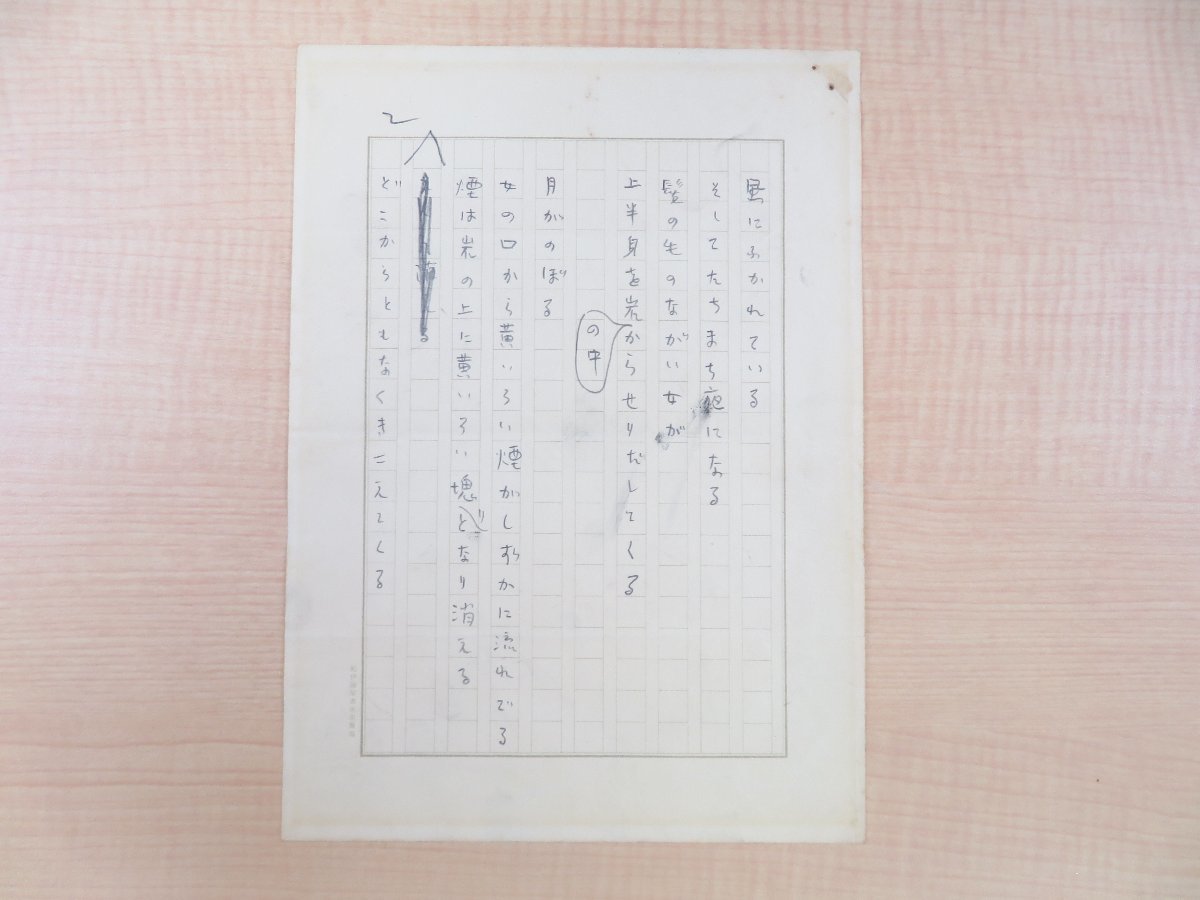 風にふかれている
そしてたちまち
になる
髪の毛のながい女が
上半身を岩からせりだしてくる
の中
月がのぼる
女の口から黄いろい煙がしずかに流れでる
煙は岩の上に黄いろい塊となり消える
どこからともなくきこえてくる